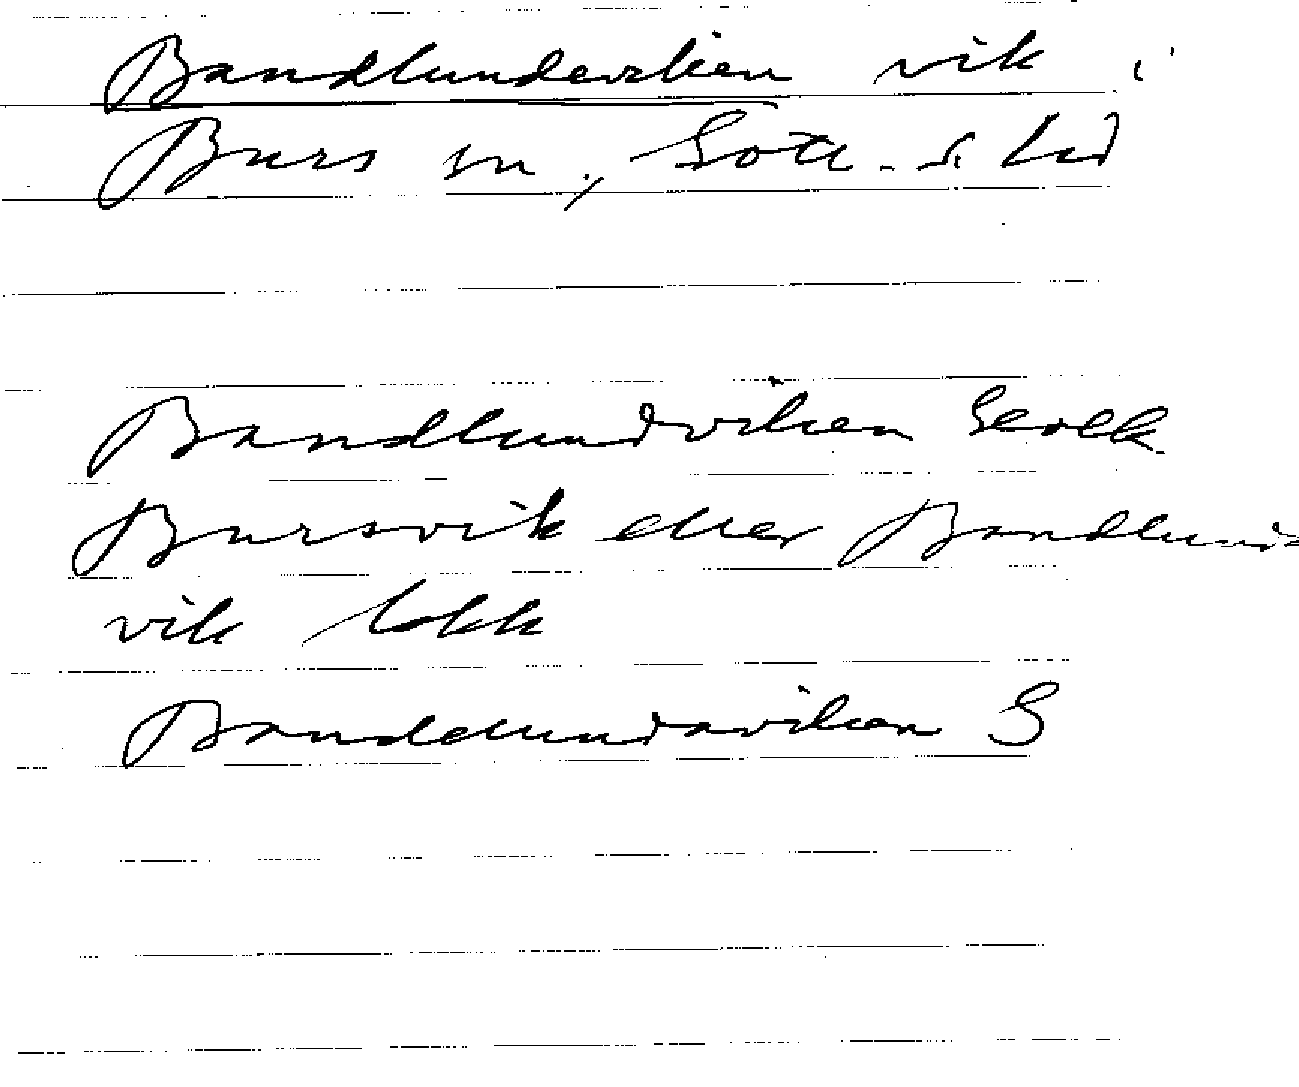 Bandlundeviken vik i
Burs sn, Gotl. s. hd
Bandlundviken Geolk
Bursvik eller Bandlunda
vik
Bandelundaviken G